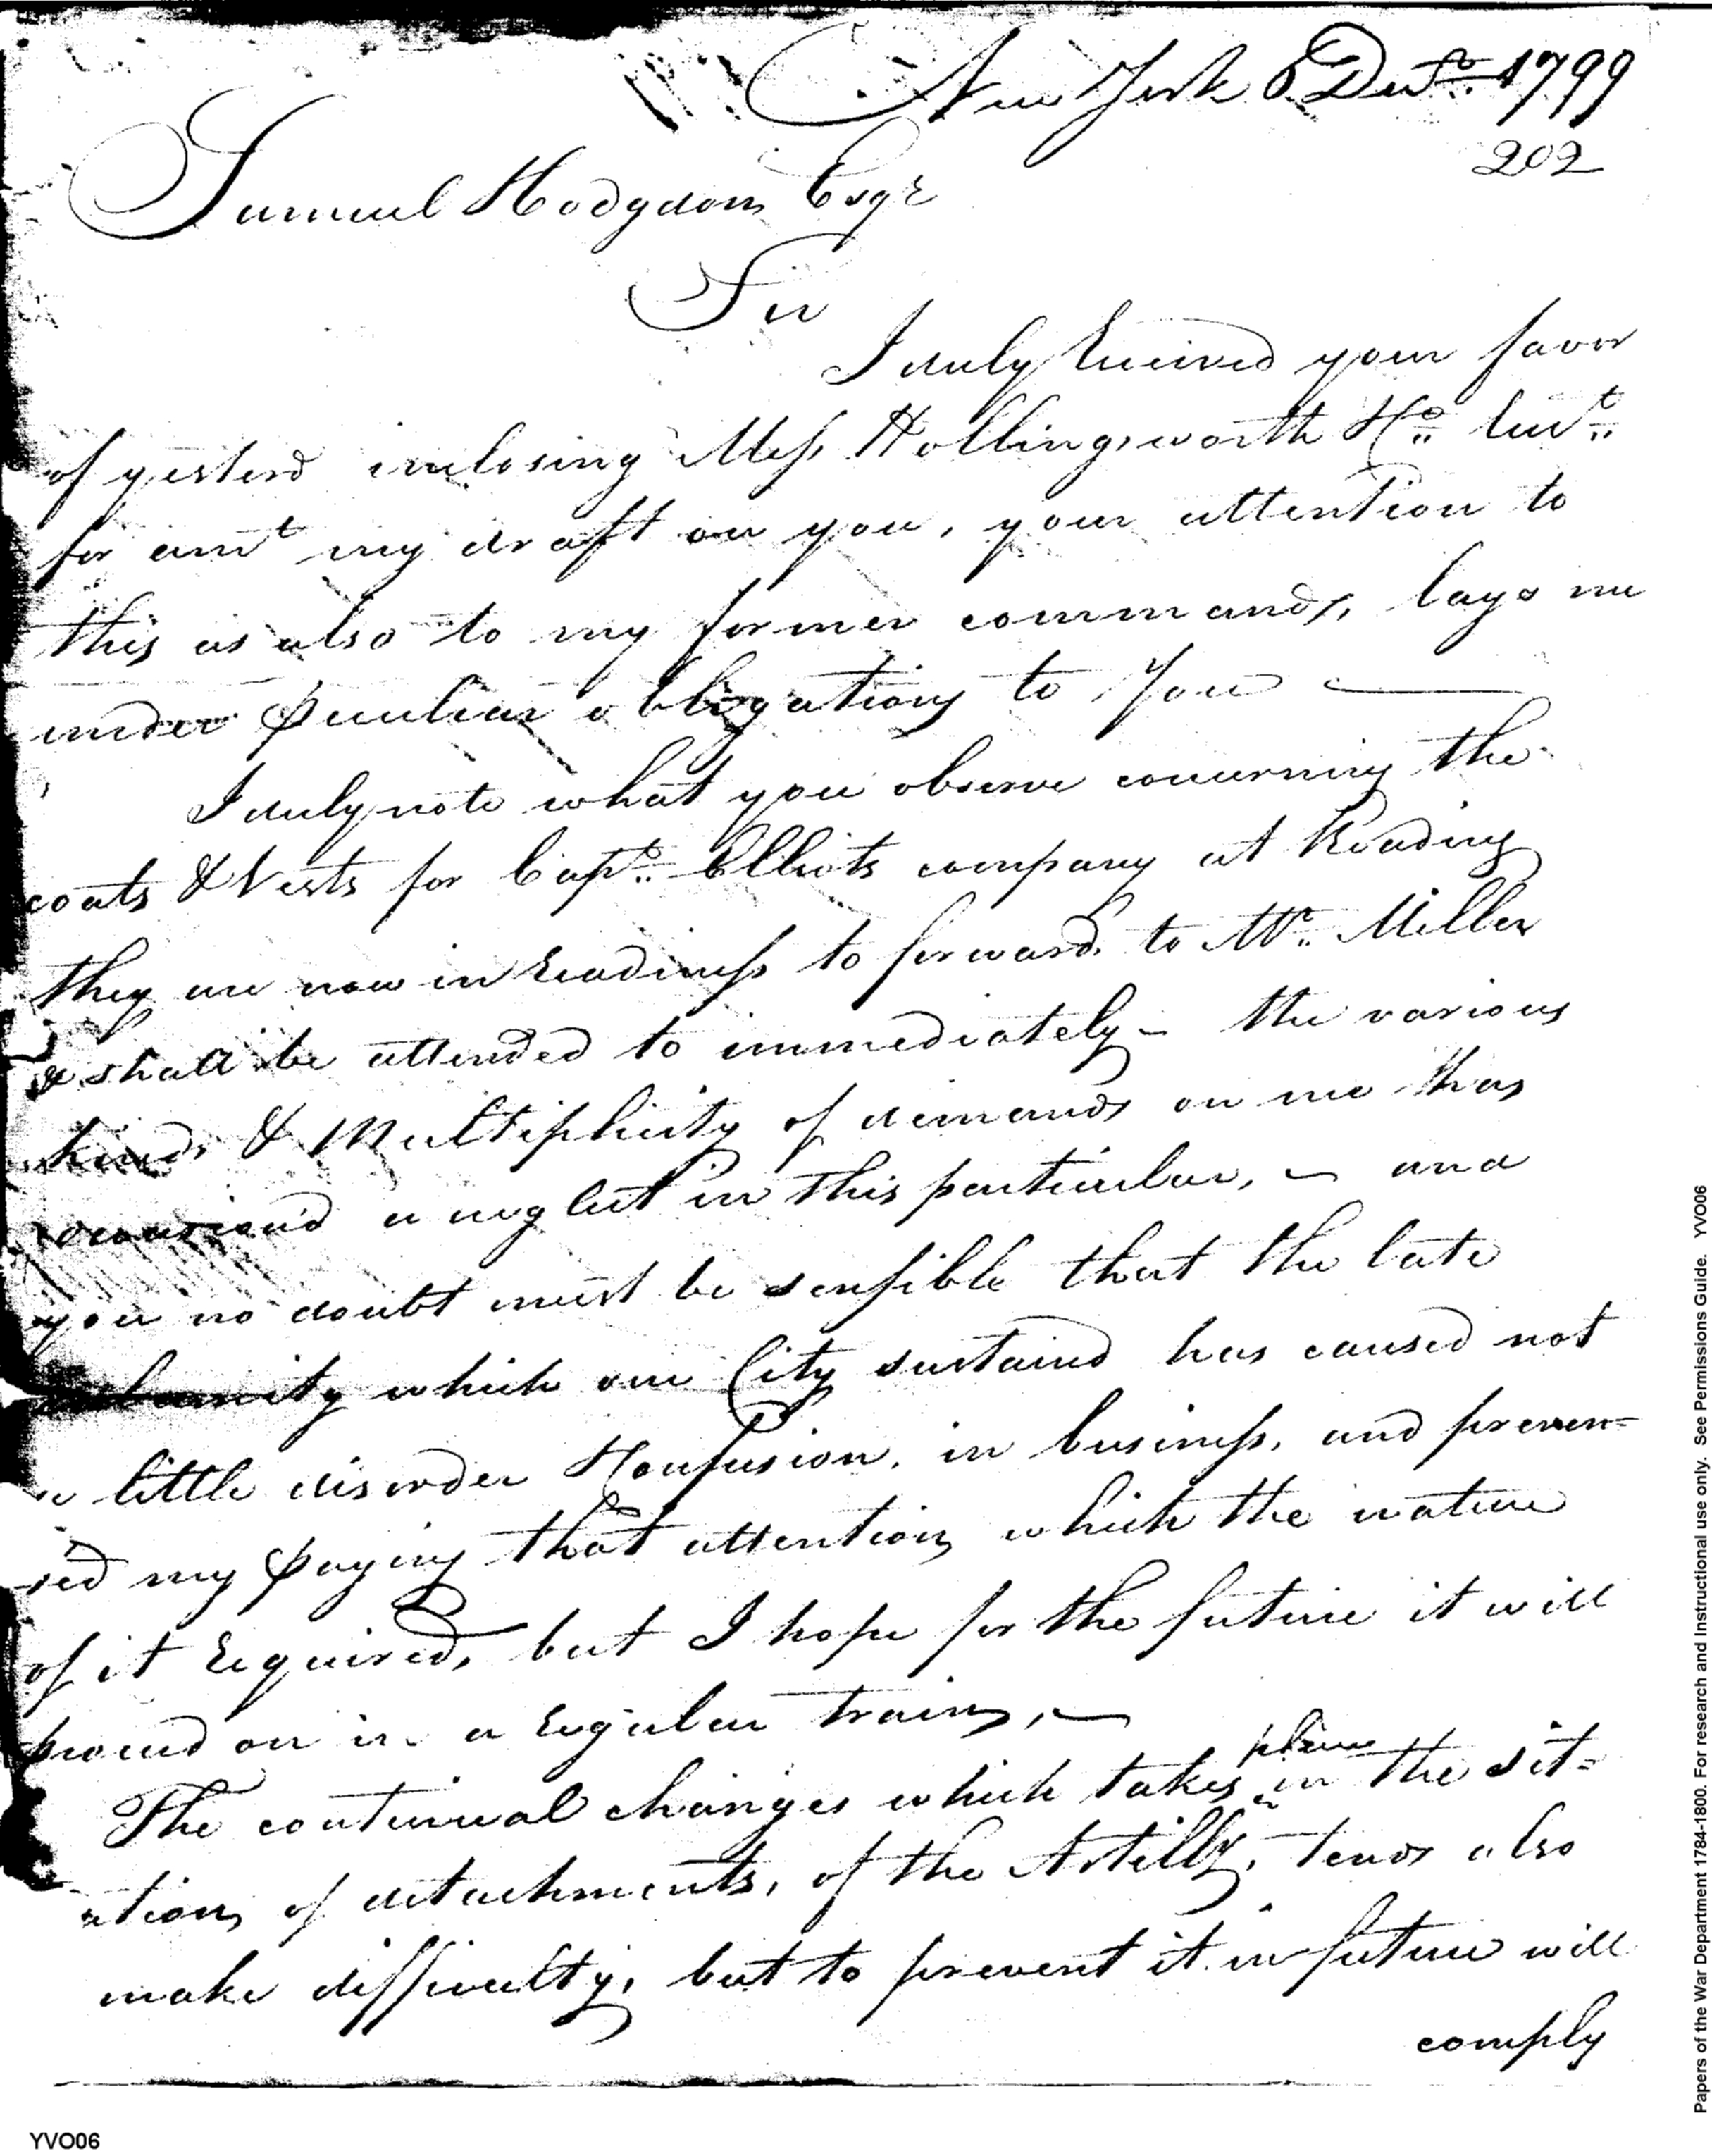 New York 6 Decr. 1799
202
Samuel Hodgdon Esqr
Sir
I duly Received your favor
of yesterd inclosing Mess. Hollingsworth & Co. 
for amt my draft on you, your attention to
this as also to my former commands, lays me
under peculiar obligations to You
I duly note what you observe concerning the
coats & Vests for Capt. Elliots company at Reading
they are now in Readiness to forward to Mr. Miller
& shall be attended to immediately – the various
kinds & Multiplicity of demands on me has
occasiond a neglect in this particular, – and
you no doubt must be sensible that the late
calamity which our City sustaind has caused not
a little disorder & Confusion, in business, and preven=
ted my paying that attention which the nature
of it Required, but I hope for the future it will
proceed on in a Regular train, –
The continual changes which takes place in the sit=
ation of detachments, of the Artilly, tends also
make difficulty, but to prevent it in future will
comply
Papers of the War Department 1784-1800. For research and Instructional use only. See Permissions Guide. YVO06
YVO06